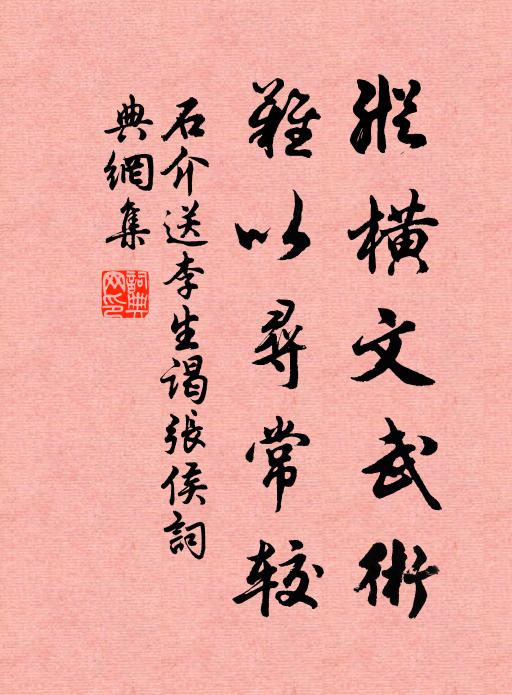 縱橫文武術
難以尋常較
石介送李生謁張侯詞
典網集
詞典網印